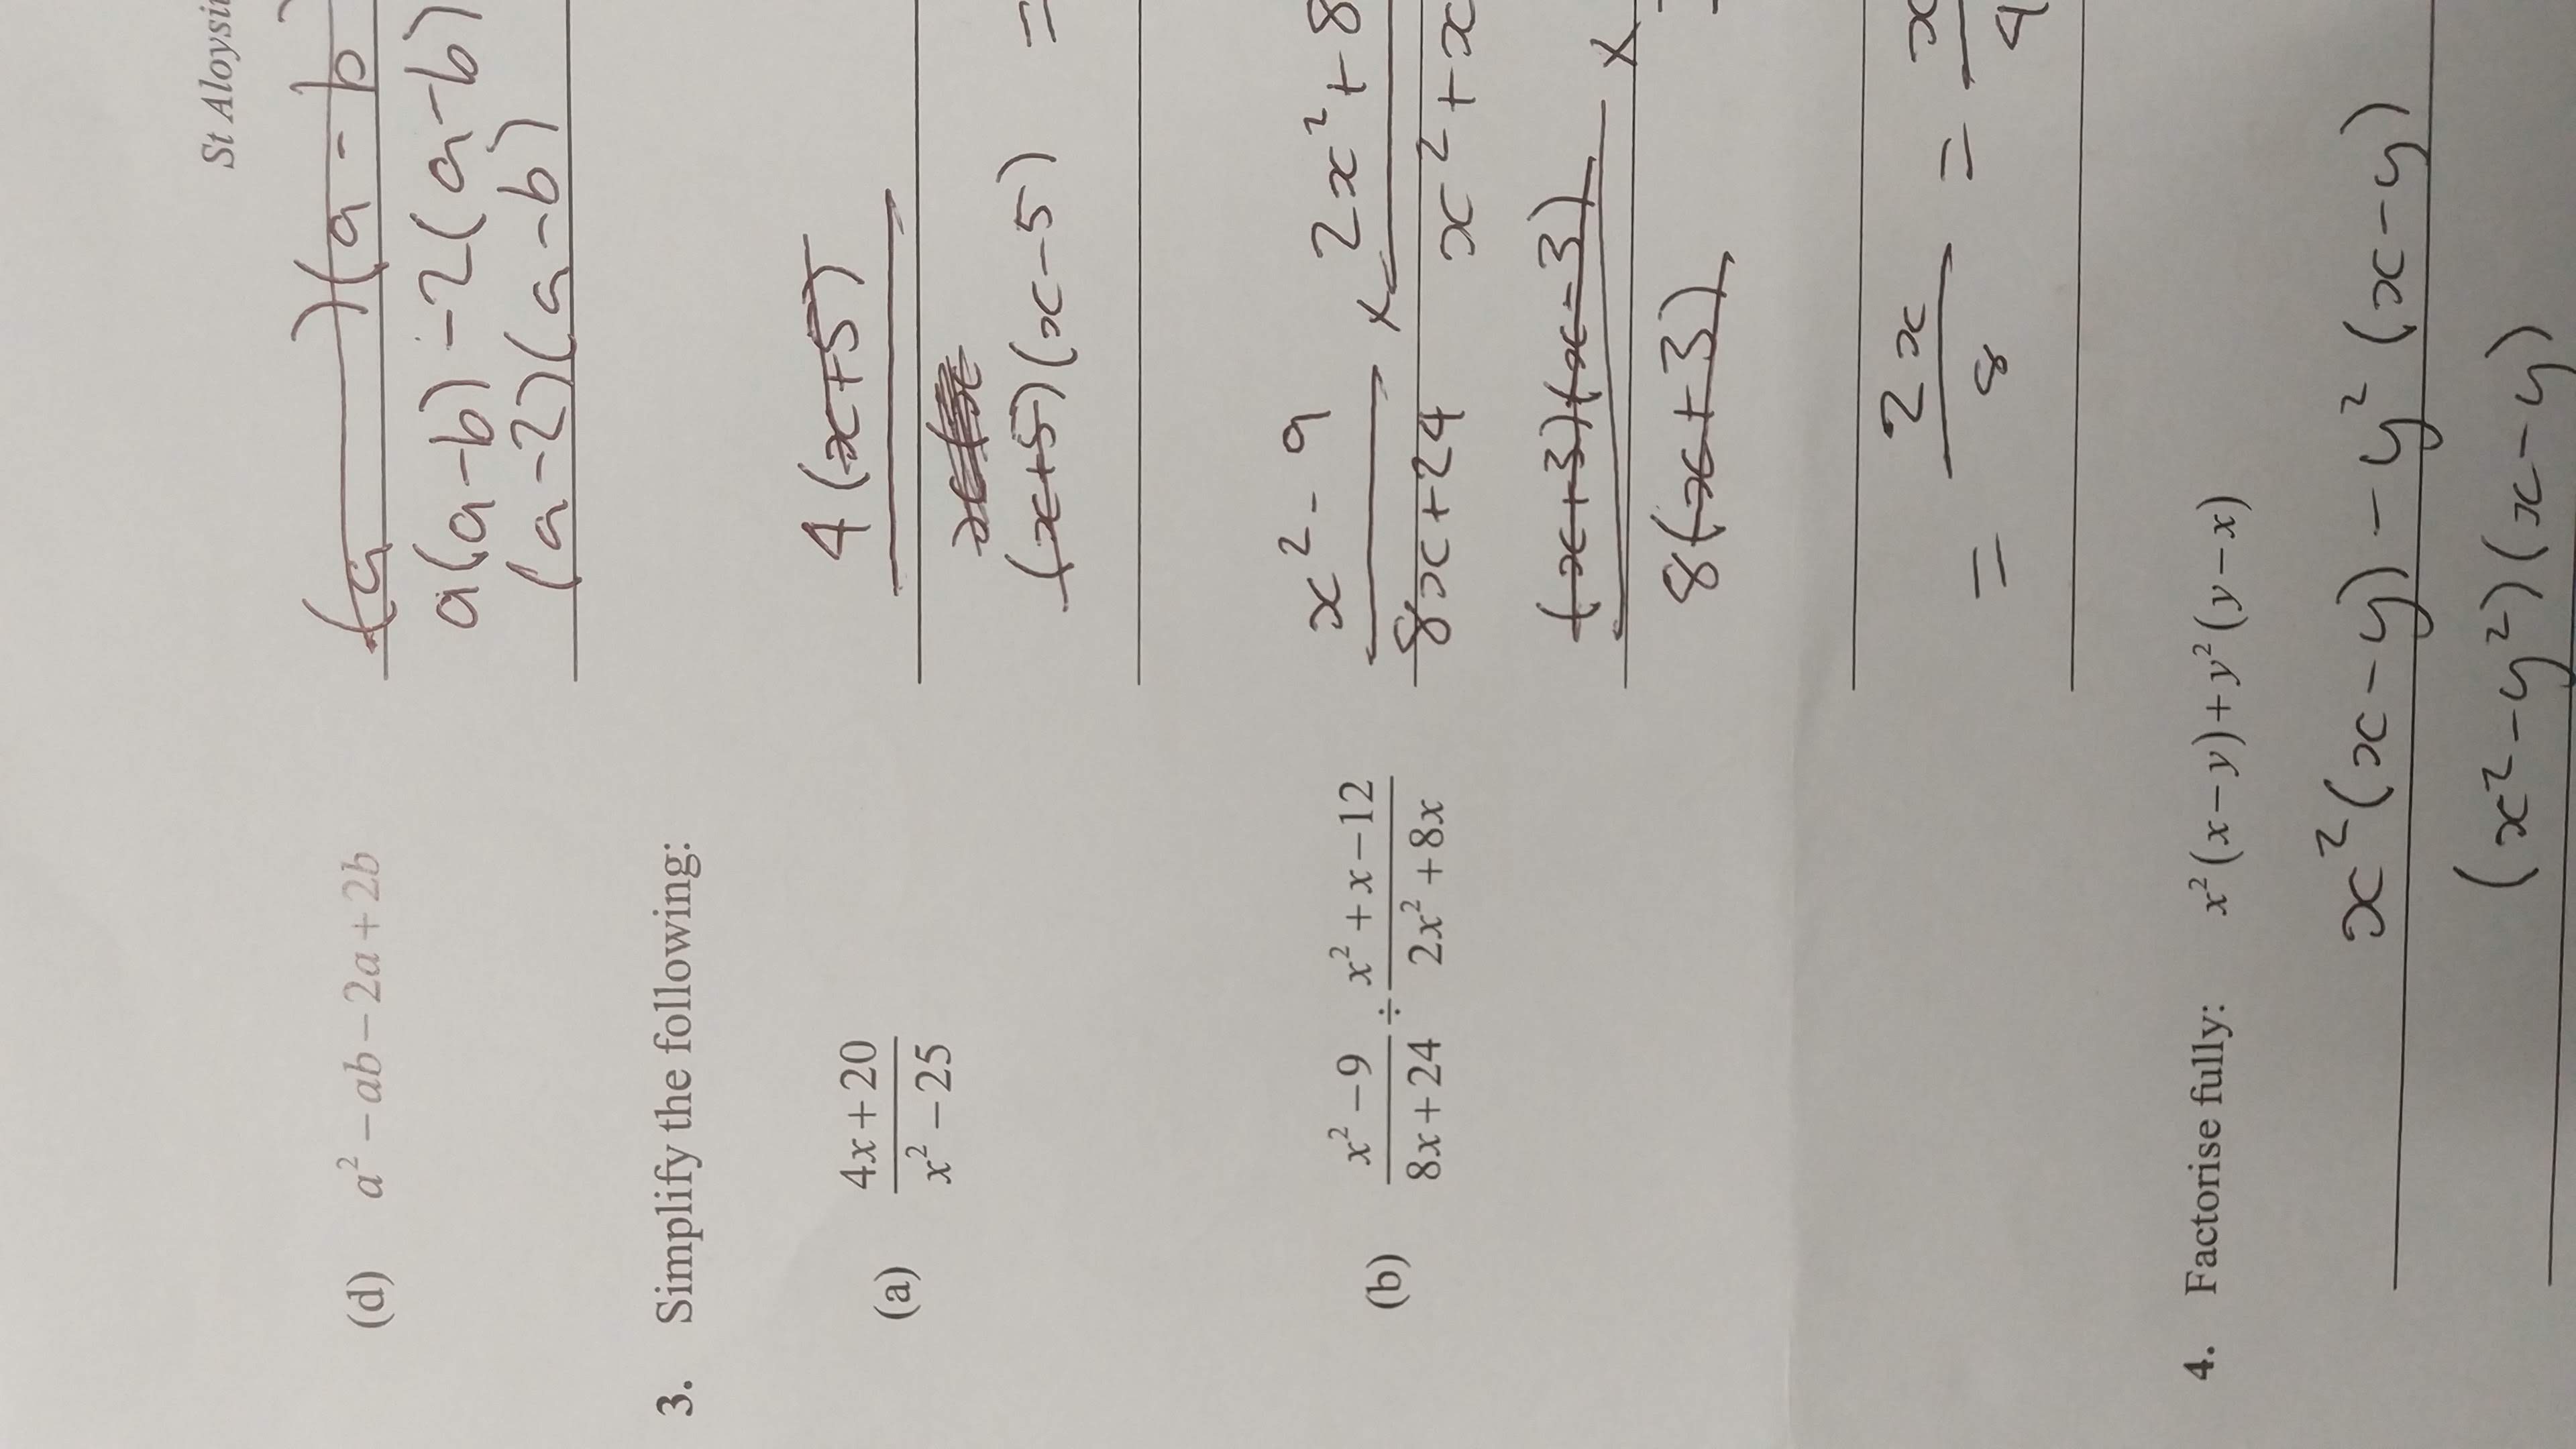 St Aloysi
(d) a² − ab − 2a + 2b
(a )(a − b
a(a−b) −2(a−b)
(a−2)(a−b)
3. Simplify the following:
(a) (4x+20)/(x²−25)
4(x+5)
(x+5)(x−5) =
(b) (x²−9)/(8x+24) ÷ (x²+x−12)/(2x²+8x)
x²−9 × 2x²+8
8x+24 x²+x
(x+3)(x−3) ×
8(x+3)
= 2x/8 = x/4
4. Factorise fully: x²(x−y)+y²(y−x)
x²(x−y) − y²(x−y)
(x²−y²)(x−y)